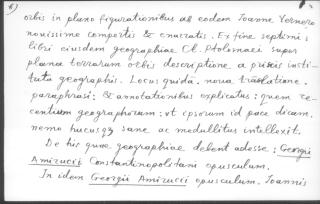 6)
orbis in plano figurationibus ab eodem Joanne Vernero
nouissime compertis & enarratis. Ex fine septimi
libri eiusdem geographiae Cl. Ptolomaei super
plana terrarum orbis descriptione a priscis insti-
tuta geographis. Locus quidã noua trãslatione.
paraphrasi: & annotationibus explicatus: quem re-
centium geographorum: ut ipsorum id pace dicam.
nemo hucusq sane ac medullitus intellexit.
De his quae geographiae debent adesse: Georgii
Amirucii Constantinopolitani opusculum.
In idem Georgii Amirucci opusculum. Joannis